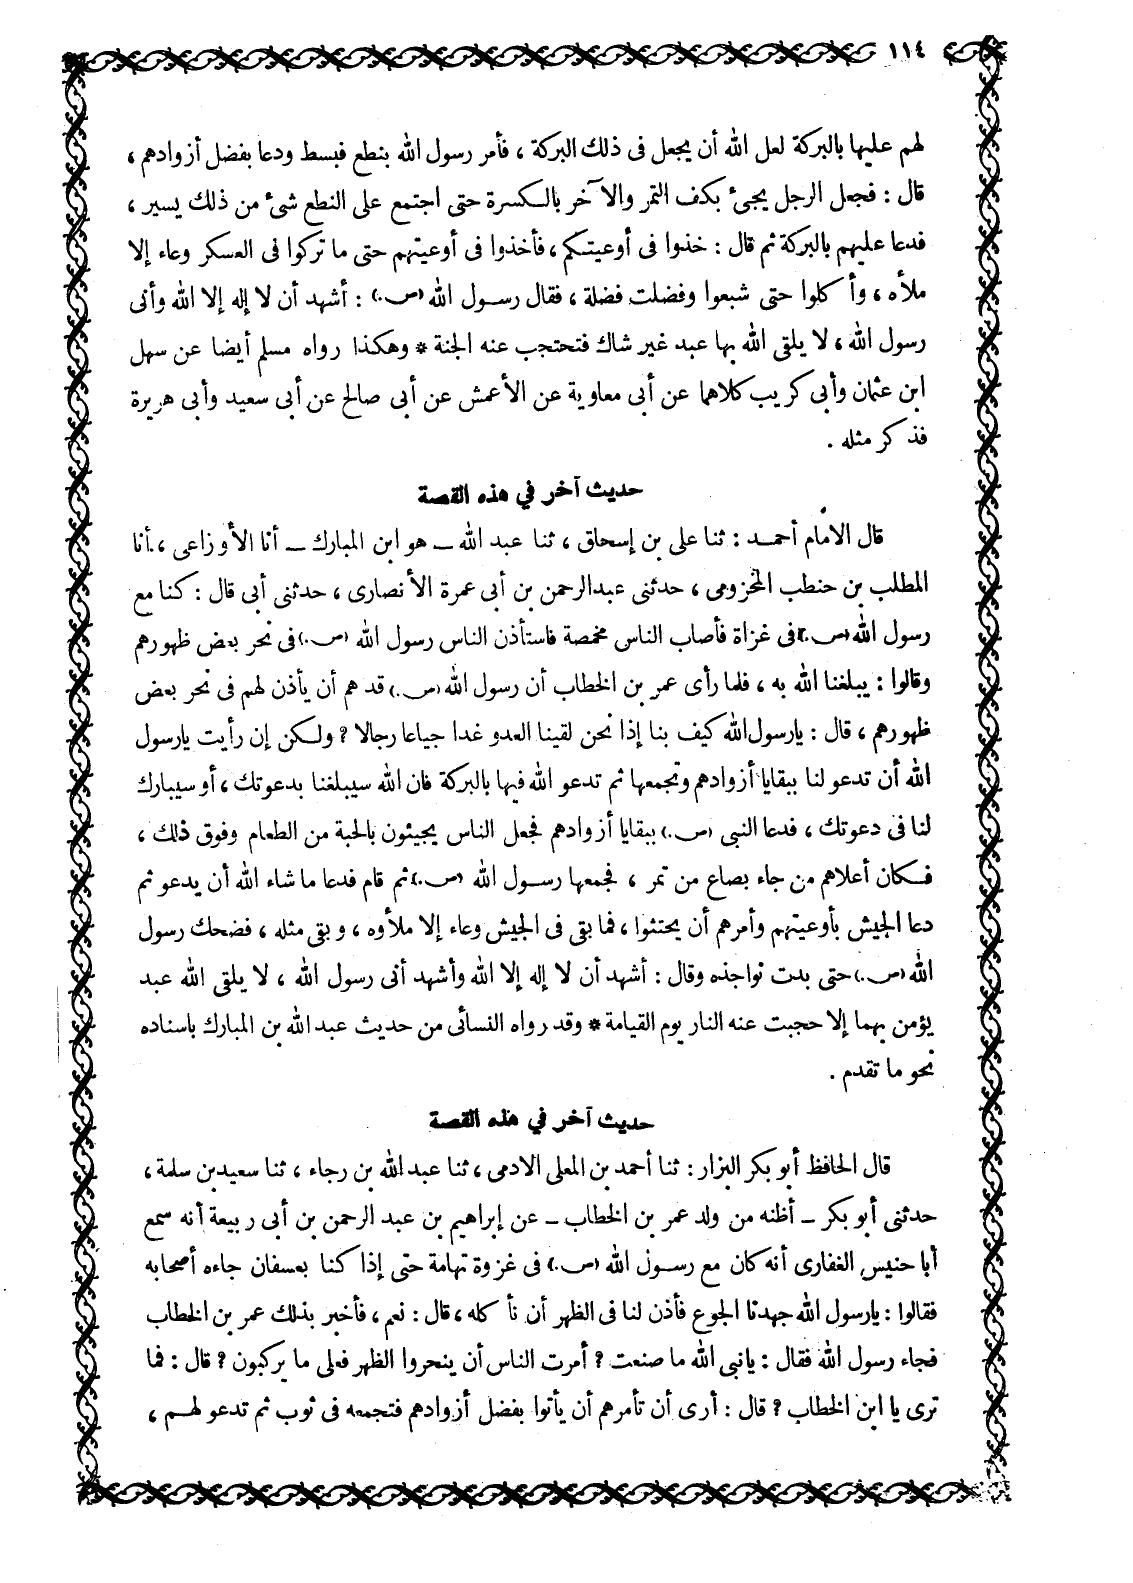 ١١٤
لهم عليها بالبركة لعل الله أن يجعل فى ذلك البركة ، فأمر رسول الله بنطع فبسط ودعا بفضل أزوادهم ،
قال : فجعل الرجل يجىُ بكف التمر والآخر بالكسرة حتى اجتمع على النطع شىُ من ذلك يسير ،
فدعا عليهم بالبركة ثم قال : خذوا فى أوعيتكم ، فأخذوا فى أوعيتهم حتى ما تركوا فى العسكر وعاء إلا
ملأه ، وأكلوا حتى شبعوا وفضلت فضلة ، فقال رسول الله (ص.) : أشهد أن لا إله إلا الله وأنى
رسول الله ، لا يلقى الله بها عبد غير شاك فتحتجب عنه الجنة * وهكذا رواه مسلم أيضا عن سهل
ابن عثمان وأبى كريب كلاهما عن أبى معاوية عن الأعمش عن أبى صالح عن أبى سعيد وأبى هريرة
فذكر مثله .
حديث آخر في هذه القصة
قال الامام أحمد : ثنا على بن إسحاق ، ثنا عبد الله ــ هو ابن المبارك ــ أنا الأوزاعى ، أنا
المطلب بن حنطب المخزومى ، حدثنى عبدالرحمن بن أبى عمرة الأنصارى ، حدثنى أبى قال : كنا مع
رسول الله (ص.) فى غزاة فأصاب الناس مخمصة فاستأذن الناس رسول الله (ص.) فى نحر بعض ظهورهم
وقالوا : يبلغنا الله به ، فلما رأى عمر بن الخطاب أن رسول الله (ص.) قد هم أن يأذن لهم فى نحر بعض
ظهورهم ، قال : يارسول الله كيف بنا إذا نحن لقينا العدو غدا جياعا رجالا ؟ ولكن إن رأيت يارسول
الله أن تدعو لنا ببقايا أزوادهم وتجمعها ثم تدعو الله فيها بالبركة فان الله سيبلغنا بدعوتك ، أو سيبارك
لنا فى دعوتك ، فدعا النبى (ص.) ببقايا أزوادهم فجعل الناس يجيئون بالحبة من الطعام وفوق ذلك ،
فكان أعلاهم من جاء بصاع من تمر ، فجمعها رسول الله (ص.) ثم قام فدعا ما شاء الله أن يدعو ثم
دعا الجيش بأوعيتهم وأمرهم أن يحتثوا ، فما بقى فى الجيش وعاء إلا ملأوه ، وبقى مثله ، فضحك رسول
الله (ص.) حتى بدت نواجذه وقال : أشهد أن لا إله إلا الله وأشهد أنى رسول الله ، لا يلقى الله عبد
يؤمن بهما إلا حجبت عنه النار يوم القيامة * وقد رواه النسائى من حديث عبد الله بن المبارك باسناده
نحو ما تقدم .
حديث آخر في هذه القصة
قال الحافظ أبو بكر البزار : ثنا أحمد بن المعلى الادمى ، ثنا عبد الله بن رجاء ، ثنا سعيد بن سلمة ،
حدثنى أبو بكر ــ أظنه من ولد عمر بن الخطاب ــ عن إبراهيم بن عبد الرحمن بن أبى ربيعة أنه سمع
أبا حنيس الغفارى أنه كان مع رسول الله (ص.) فى غزوة تهامة حتى إذا كنا بعسفان جاءه أصحابه
فقالوا : يارسول الله جهدنا الجوع فأذن لنا فى الظهر أن نأكله ، قال : نعم ، فأخبر بذلك عمر بن الخطاب
فجاء رسول الله فقال : يانبى الله ما صنعت ؟ أمرت الناس أن ينحروا الظهر فعلى ما يركبون ؟ قال : فما
ترى يا ابن الخطاب ؟ قال : أرى أن تأمرهم أن يأتوا بفضل أزوادهم فتجمعه فى ثوب ثم تدعو لهم ،